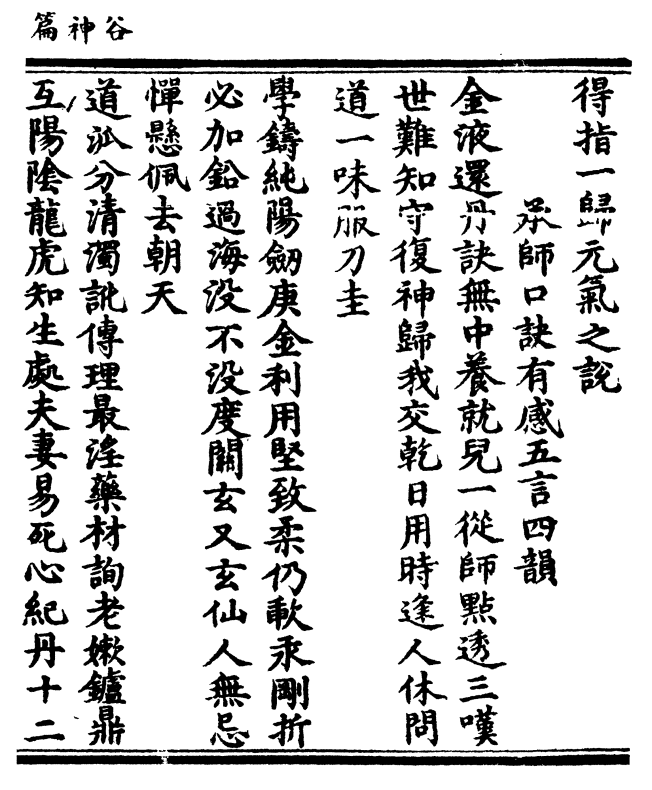 谷神篇
得指一歸元氣之說
承師口訣有感五言四韻
金液還丹訣無中養就兒一從師點透三嘆
世難知守復神歸我交乾日用時逢人休問
道一味服刀圭
學鑄純陽劒庚金利用堅致柔仍軟汞剛折
必加鉛過海没不没度關玄又玄仙人無忌
憚懸佩去朝天
道泒分清濁訛傳理最淫藥材詢老嫩鑪鼎
互陽陰龍虎知生處夫妻易死心紀丹十二